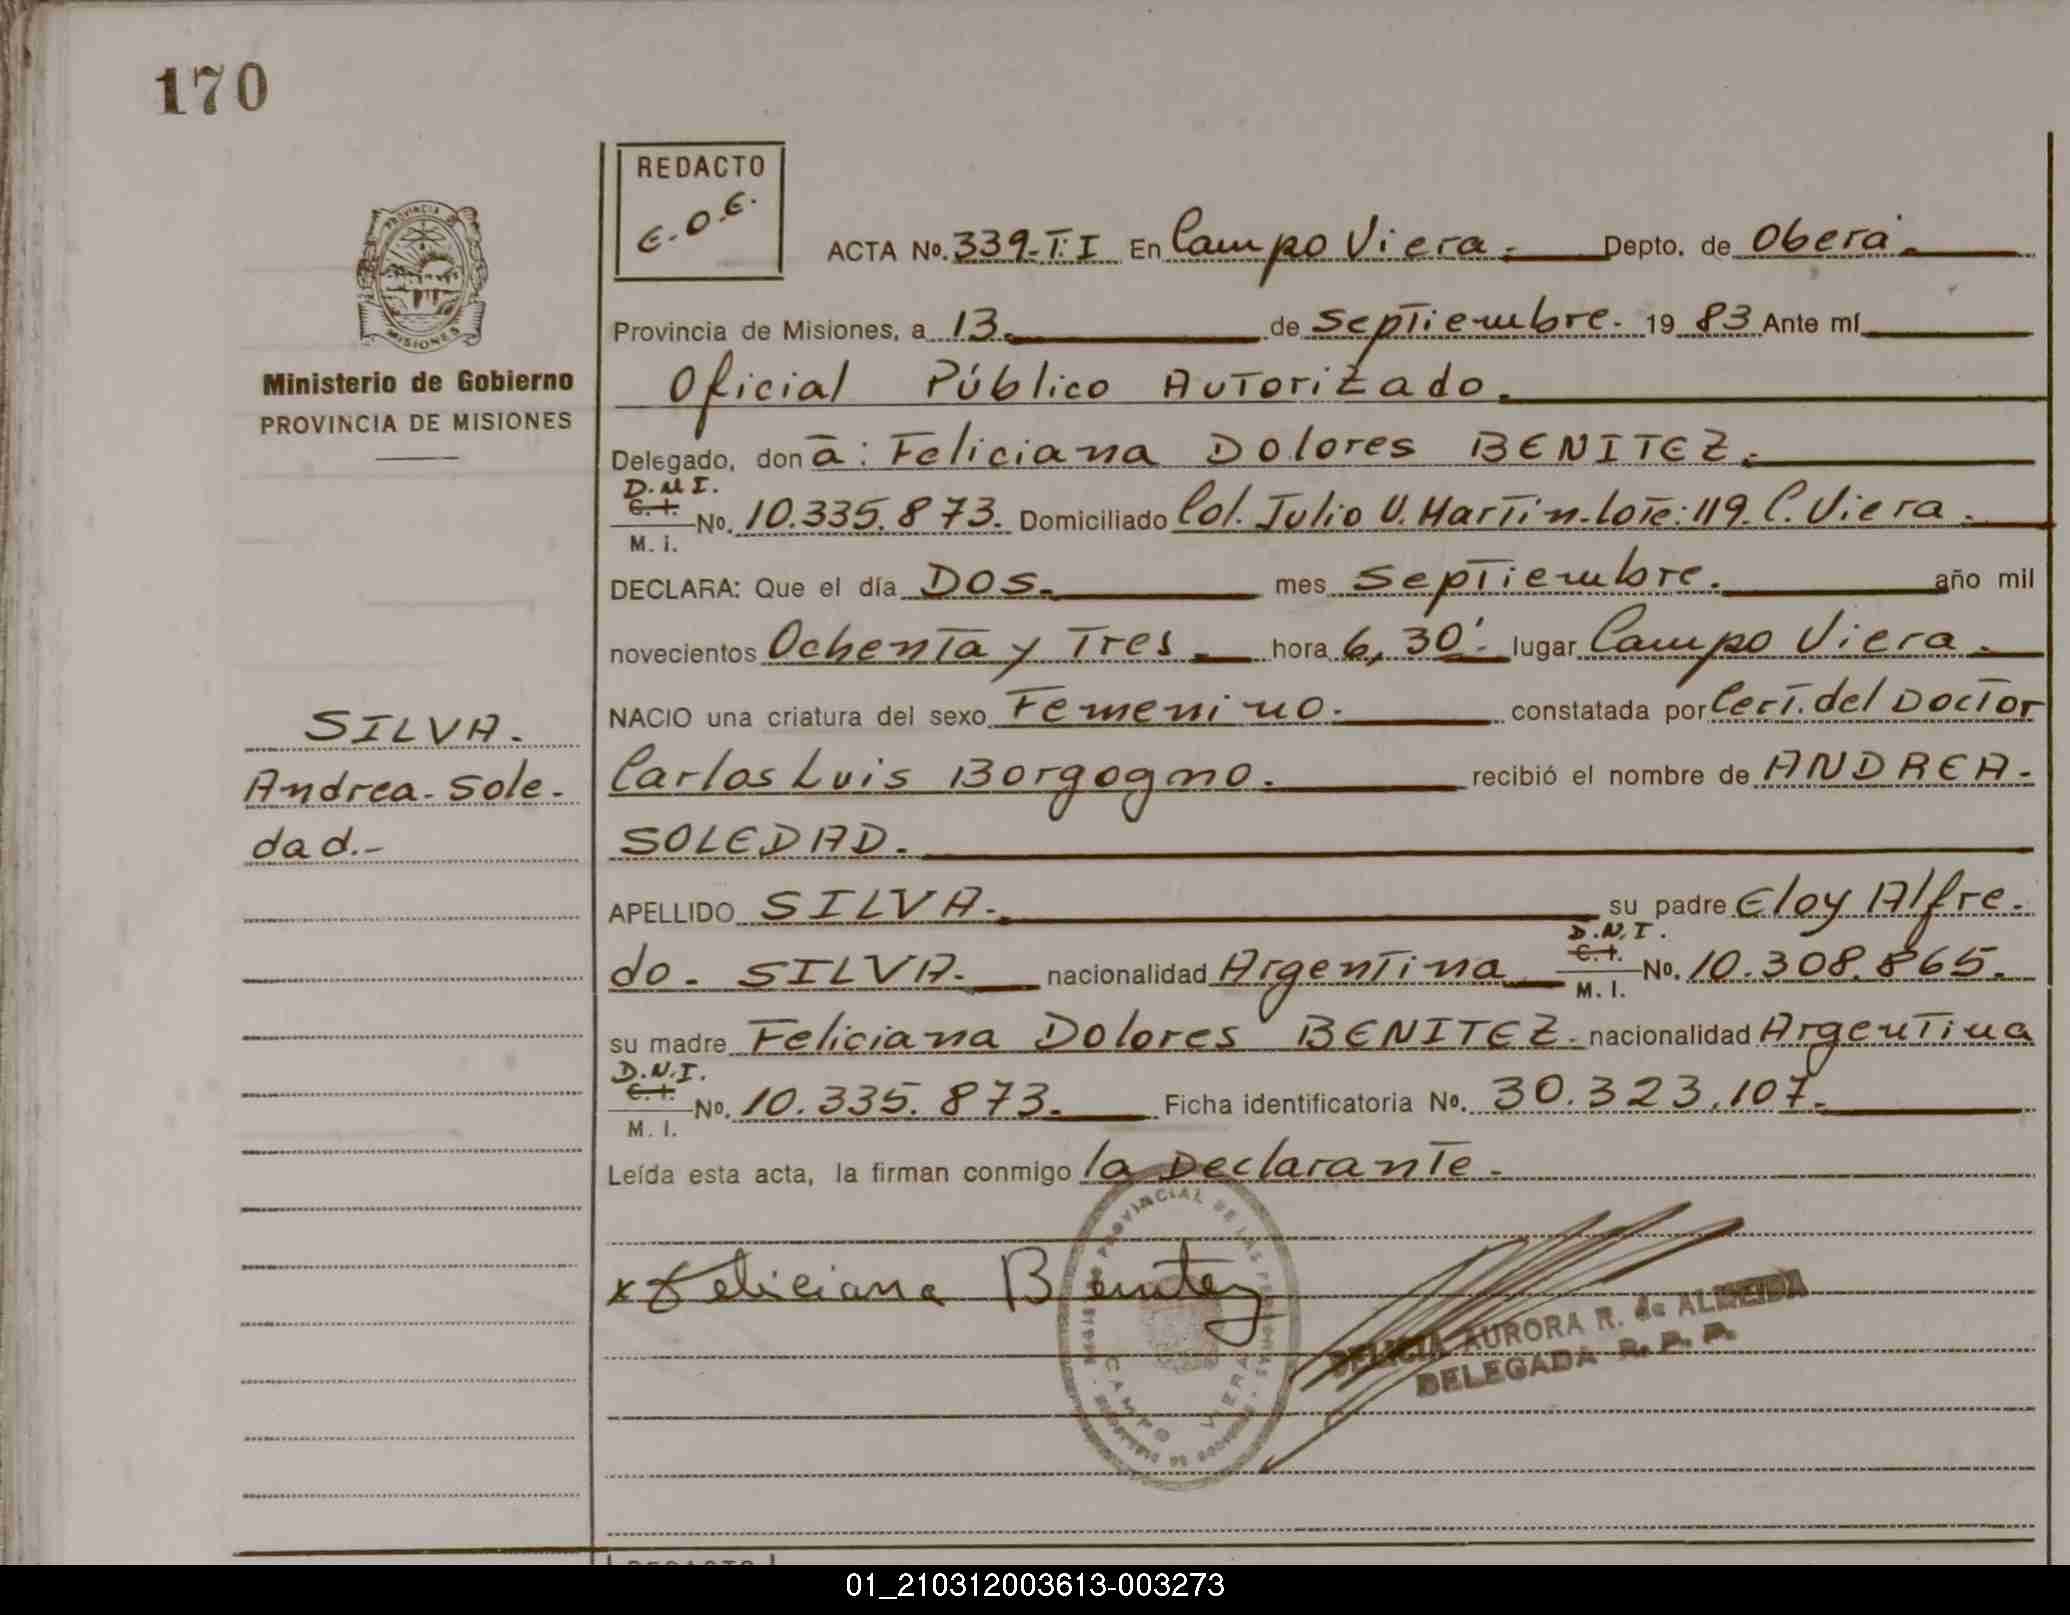 170
REDACTO
E.O.E.
ACTA No. 339-T:I En Campo Viera. Depto. de Oberá.
Provincia de Misiones, a 13. de Septiembre. 19 83 Ante mí
Oficial Público Autorizado.
Delegado, don a: Feliciana Dolores BENITEZ.
D.N.I.
C.I. No. 10.335.873. Domiciliado Col. Julio U. Martin-lote: 119. C. Viera.
M. i.
DECLARA: Que el día DOS. mes Septiembre. año mil
novecientos Ochenta y Tres. hora 6,30'. lugar Campo Viera.
NACIO una criatura del sexo Femenino. constatada por Cert. del Doctor
Carlos Luis Borgogno. recibió el nombre de ANDREA.
SOLEDAD.
APELLIDO SILVA. su padre Eloy Alfre.
D.N.I.
do. SILVA. nacionalidad Argentina C.I. No. 10.308.865.
M. I.
su madre Feliciana Dolores BENITEZ. nacionalidad Argentina
D.N.I.
C.I. No. 10.335.873. Ficha identificatoria No. 30.323.107.
M. I.
Leída esta acta, la firman conmigo la Declarante.
PROVINCIA DE
MISIONES
Ministerio de Gobierno
PROVINCIA DE MISIONES
SILVA.
Andrea-Sole-
dad.-
x Feliciana Benitez
PROVINCIAL DE LAS PERSONAS
CAMPO VIERA
DELICIA AURORA R. de ALMEIDA
DELEGADA R. P. P.
REDACTO
01_210312003613-003273